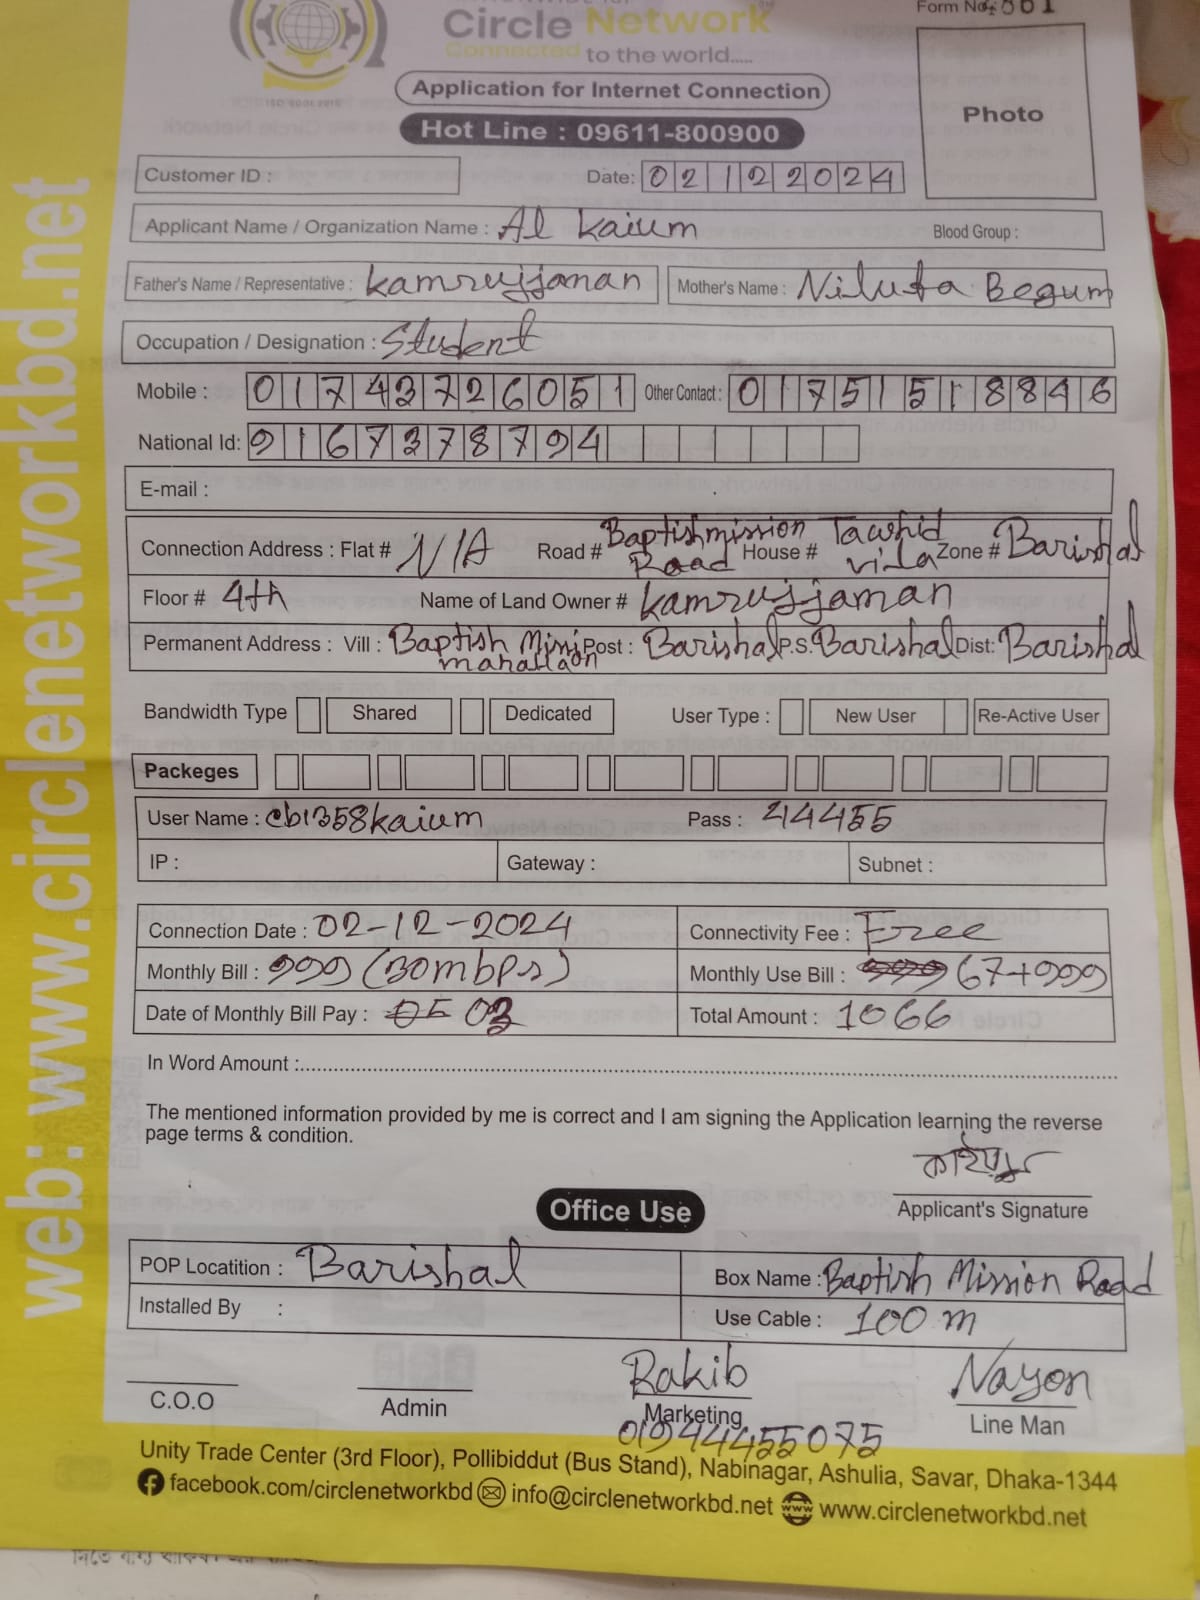 Circle Network
Form No
Connected to the world.....
ISO 9001:2015
Application for Internet Connection
Hot Line : 09611-800900
Photo
Customer ID :
Date: 02122024
Applicant Name / Organization Name : Al Kaium
Blood Group :
Father's Name / Representative : Kamrujjaman
Mother's Name : Nilufa Begum
Occupation / Designation : Student
Mobile : 01743726051 Other Contact : 01751518846
National Id: 9167378794
E-mail :
Connection Address : Flat # N/A Road # Baptishmission Road House # Tawhid villa Zone # Barishal
Floor # 4th Name of Land Owner # Kamrujjaman
Permanent Address : Vill : Baptish Post : Barishal P.S. Barishal Dist: Barishal
Bandwidth Type Shared Dedicated User Type : New User Re-Active User
Packeges
User Name : cb1358kaium Pass : 44455
IP : Gateway : Subnet :
Connection Date : 02-12-2024 Connectivity Fee : Free
Monthly Bill : 999 (30mbps) Monthly Use Bill : 999 67+999
Date of Monthly Bill Pay : 05 03 Total Amount : 1066
In Word Amount :
The mentioned information provided by me is correct and I am signing the Application learning the reverse
page terms & condition.
Applicant's Signature
Office Use
POP Locatition : Barishal Box Name : Baptish Mission Road
Installed By : Use Cable : 100 m
Rakib Nayon
C.O.O Admin Marketing Line Man
01944455075
Unity Trade Center (3rd Floor), Pollibiddut (Bus Stand), Nabinagar, Ashulia, Savar, Dhaka-1344
facebook.com/circlenetworkbd info@circlenetworkbd.net www.circlenetworkbd.net
web: www.circlenetworkbd.net